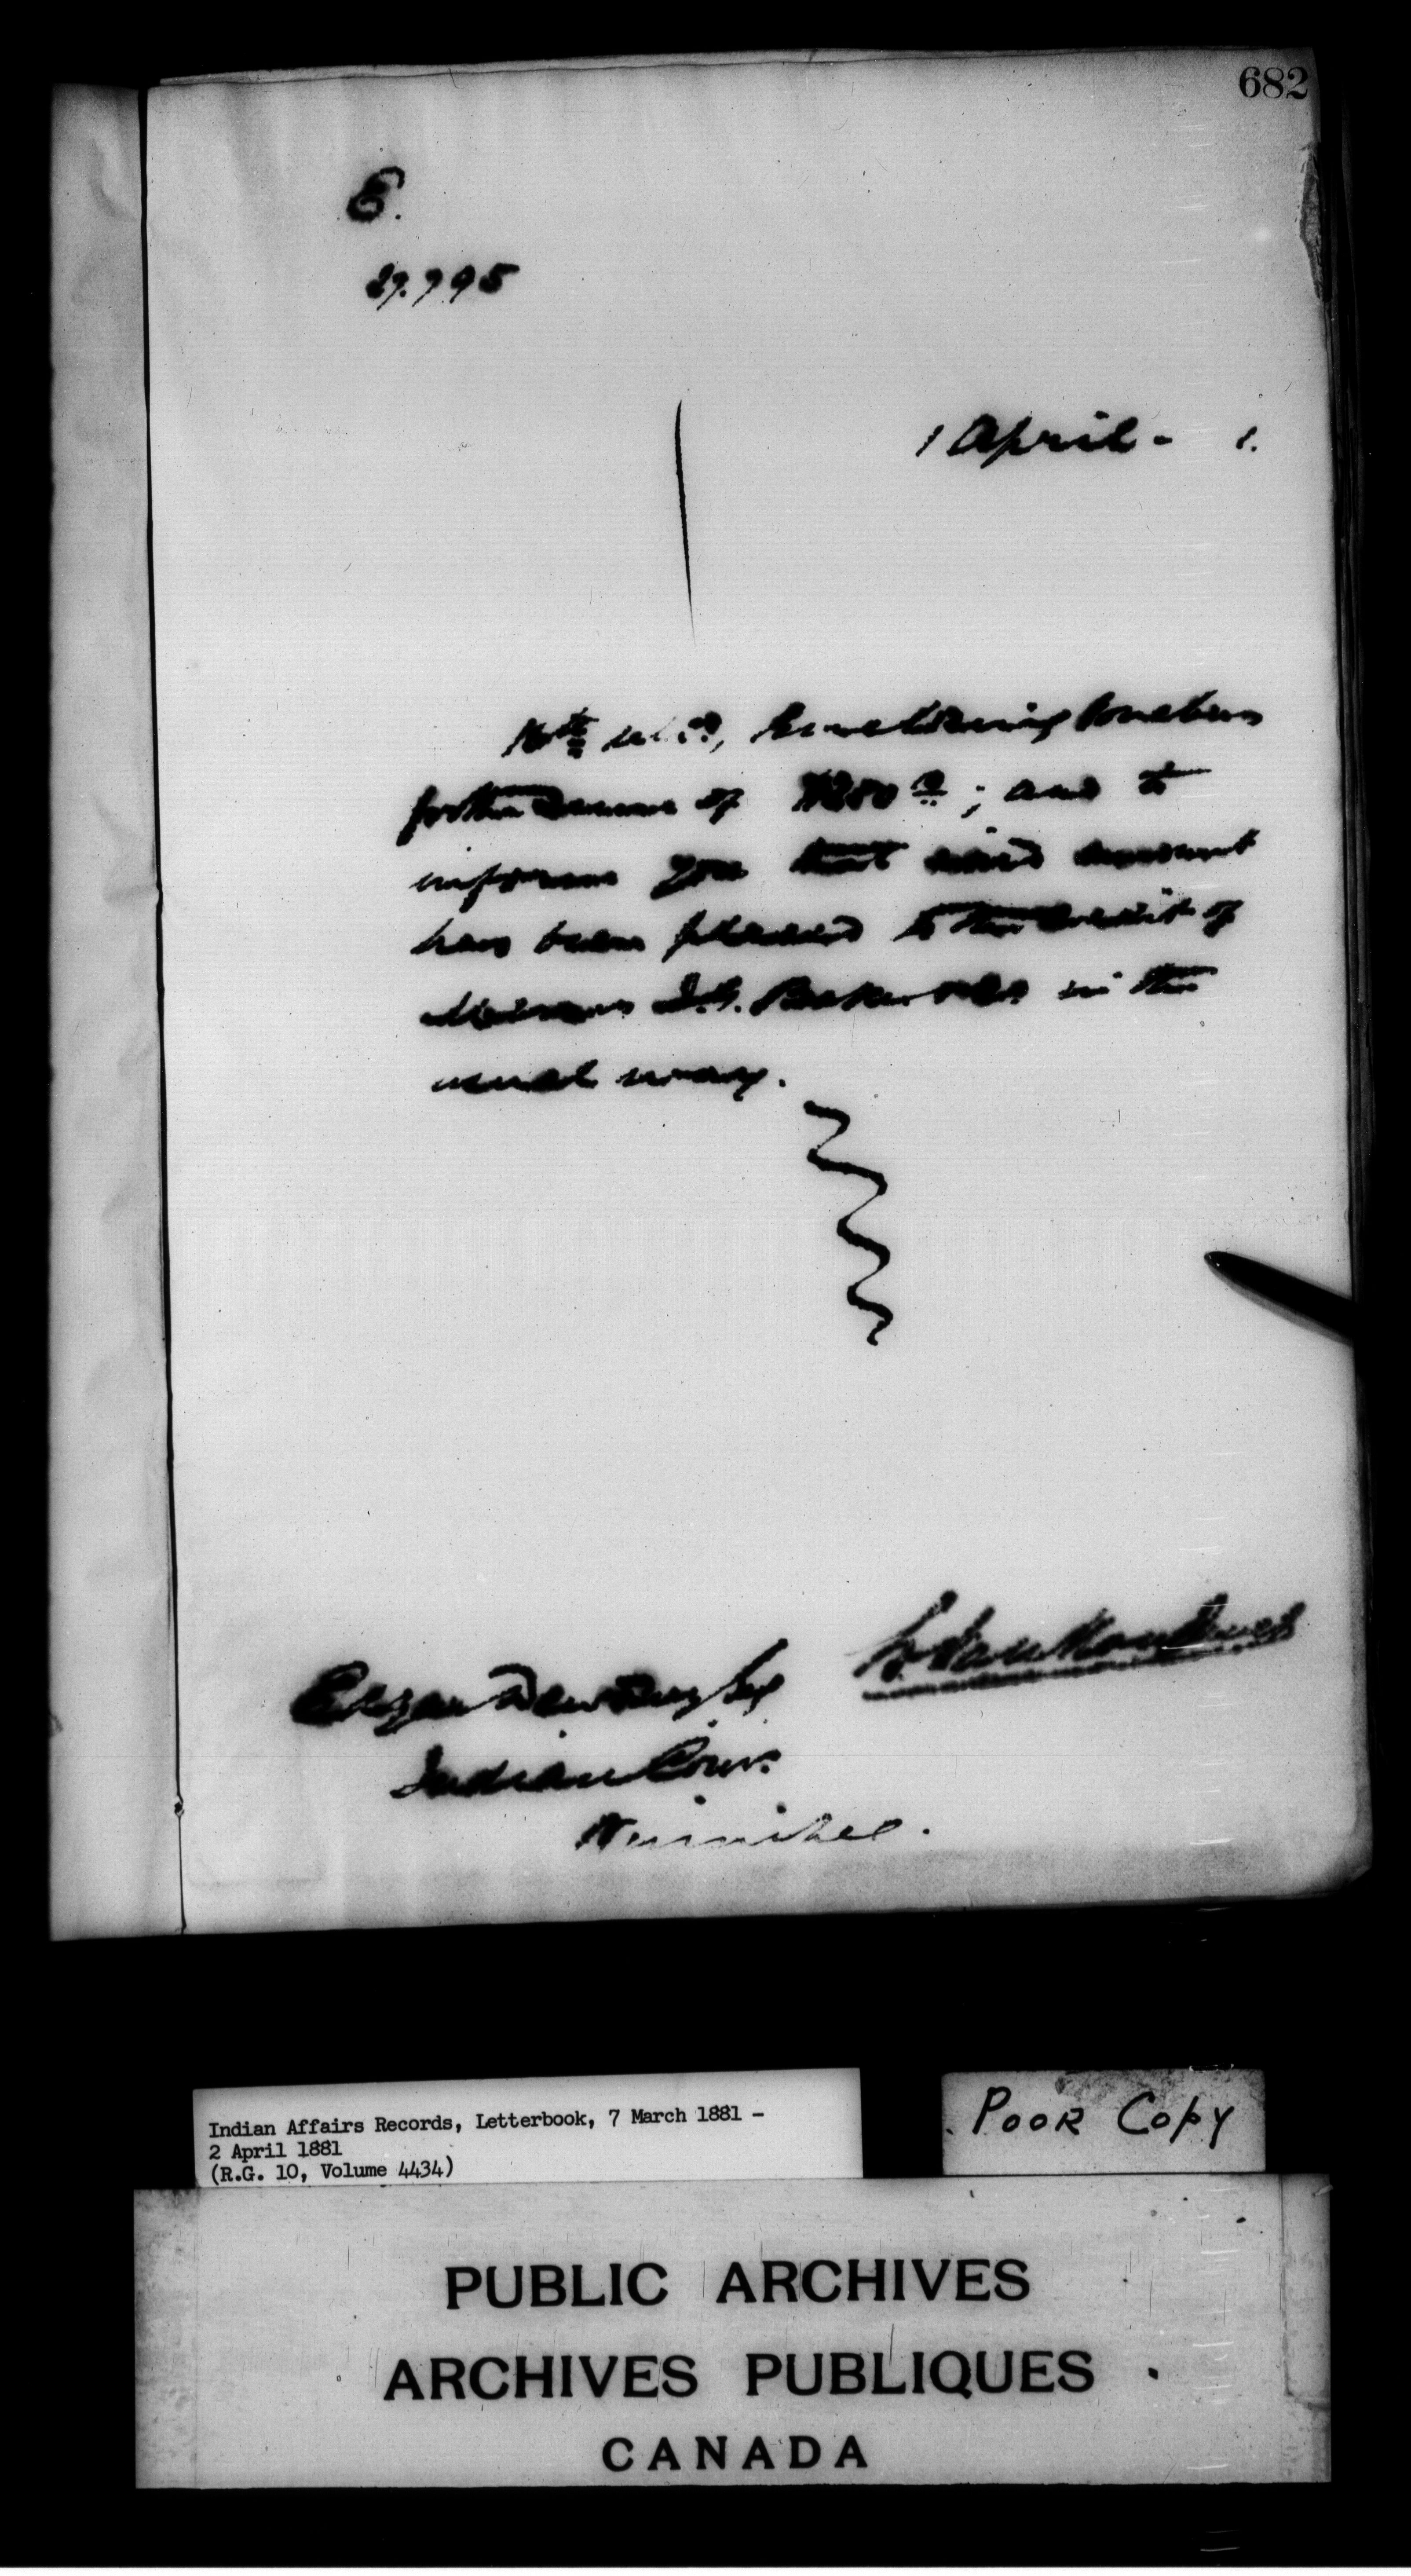 682
E.
29.995
1 April - 1.
16th
for the sum of $280 00/; and to
inform you that said amount
has been placed to the credit of
Messrs I.G. Baker & Co. in the
usual way.
L. VanKoughnet
Edgar Dewdney Esq
Indian Comr.
Winnipeg.
Indian Affairs Records, Letterbook, 7 March 1881 -
2 April 1881
(R.G. 10, Volume 4434)
POOR COPY
PUBLIC ARCHIVES
ARCHIVES PUBLIQUES
CANADA